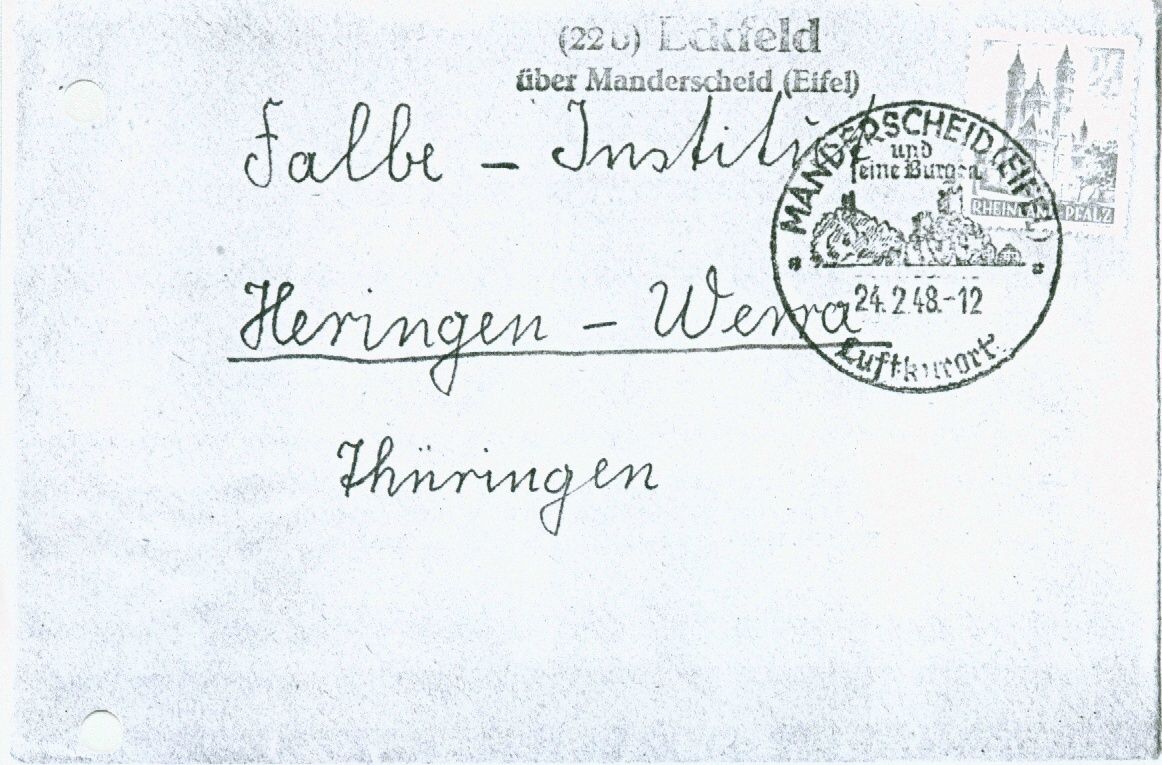 (22b) Eckfeld
über Manderscheid (Eifel)
24
RHEINLAND-PFALZ
Falbe - Institut
MANDERSCHEID (EIFEL)
und
seine Burgen
24.2.48.-12
Luftkurort
Heringen - Werra
Thüringen